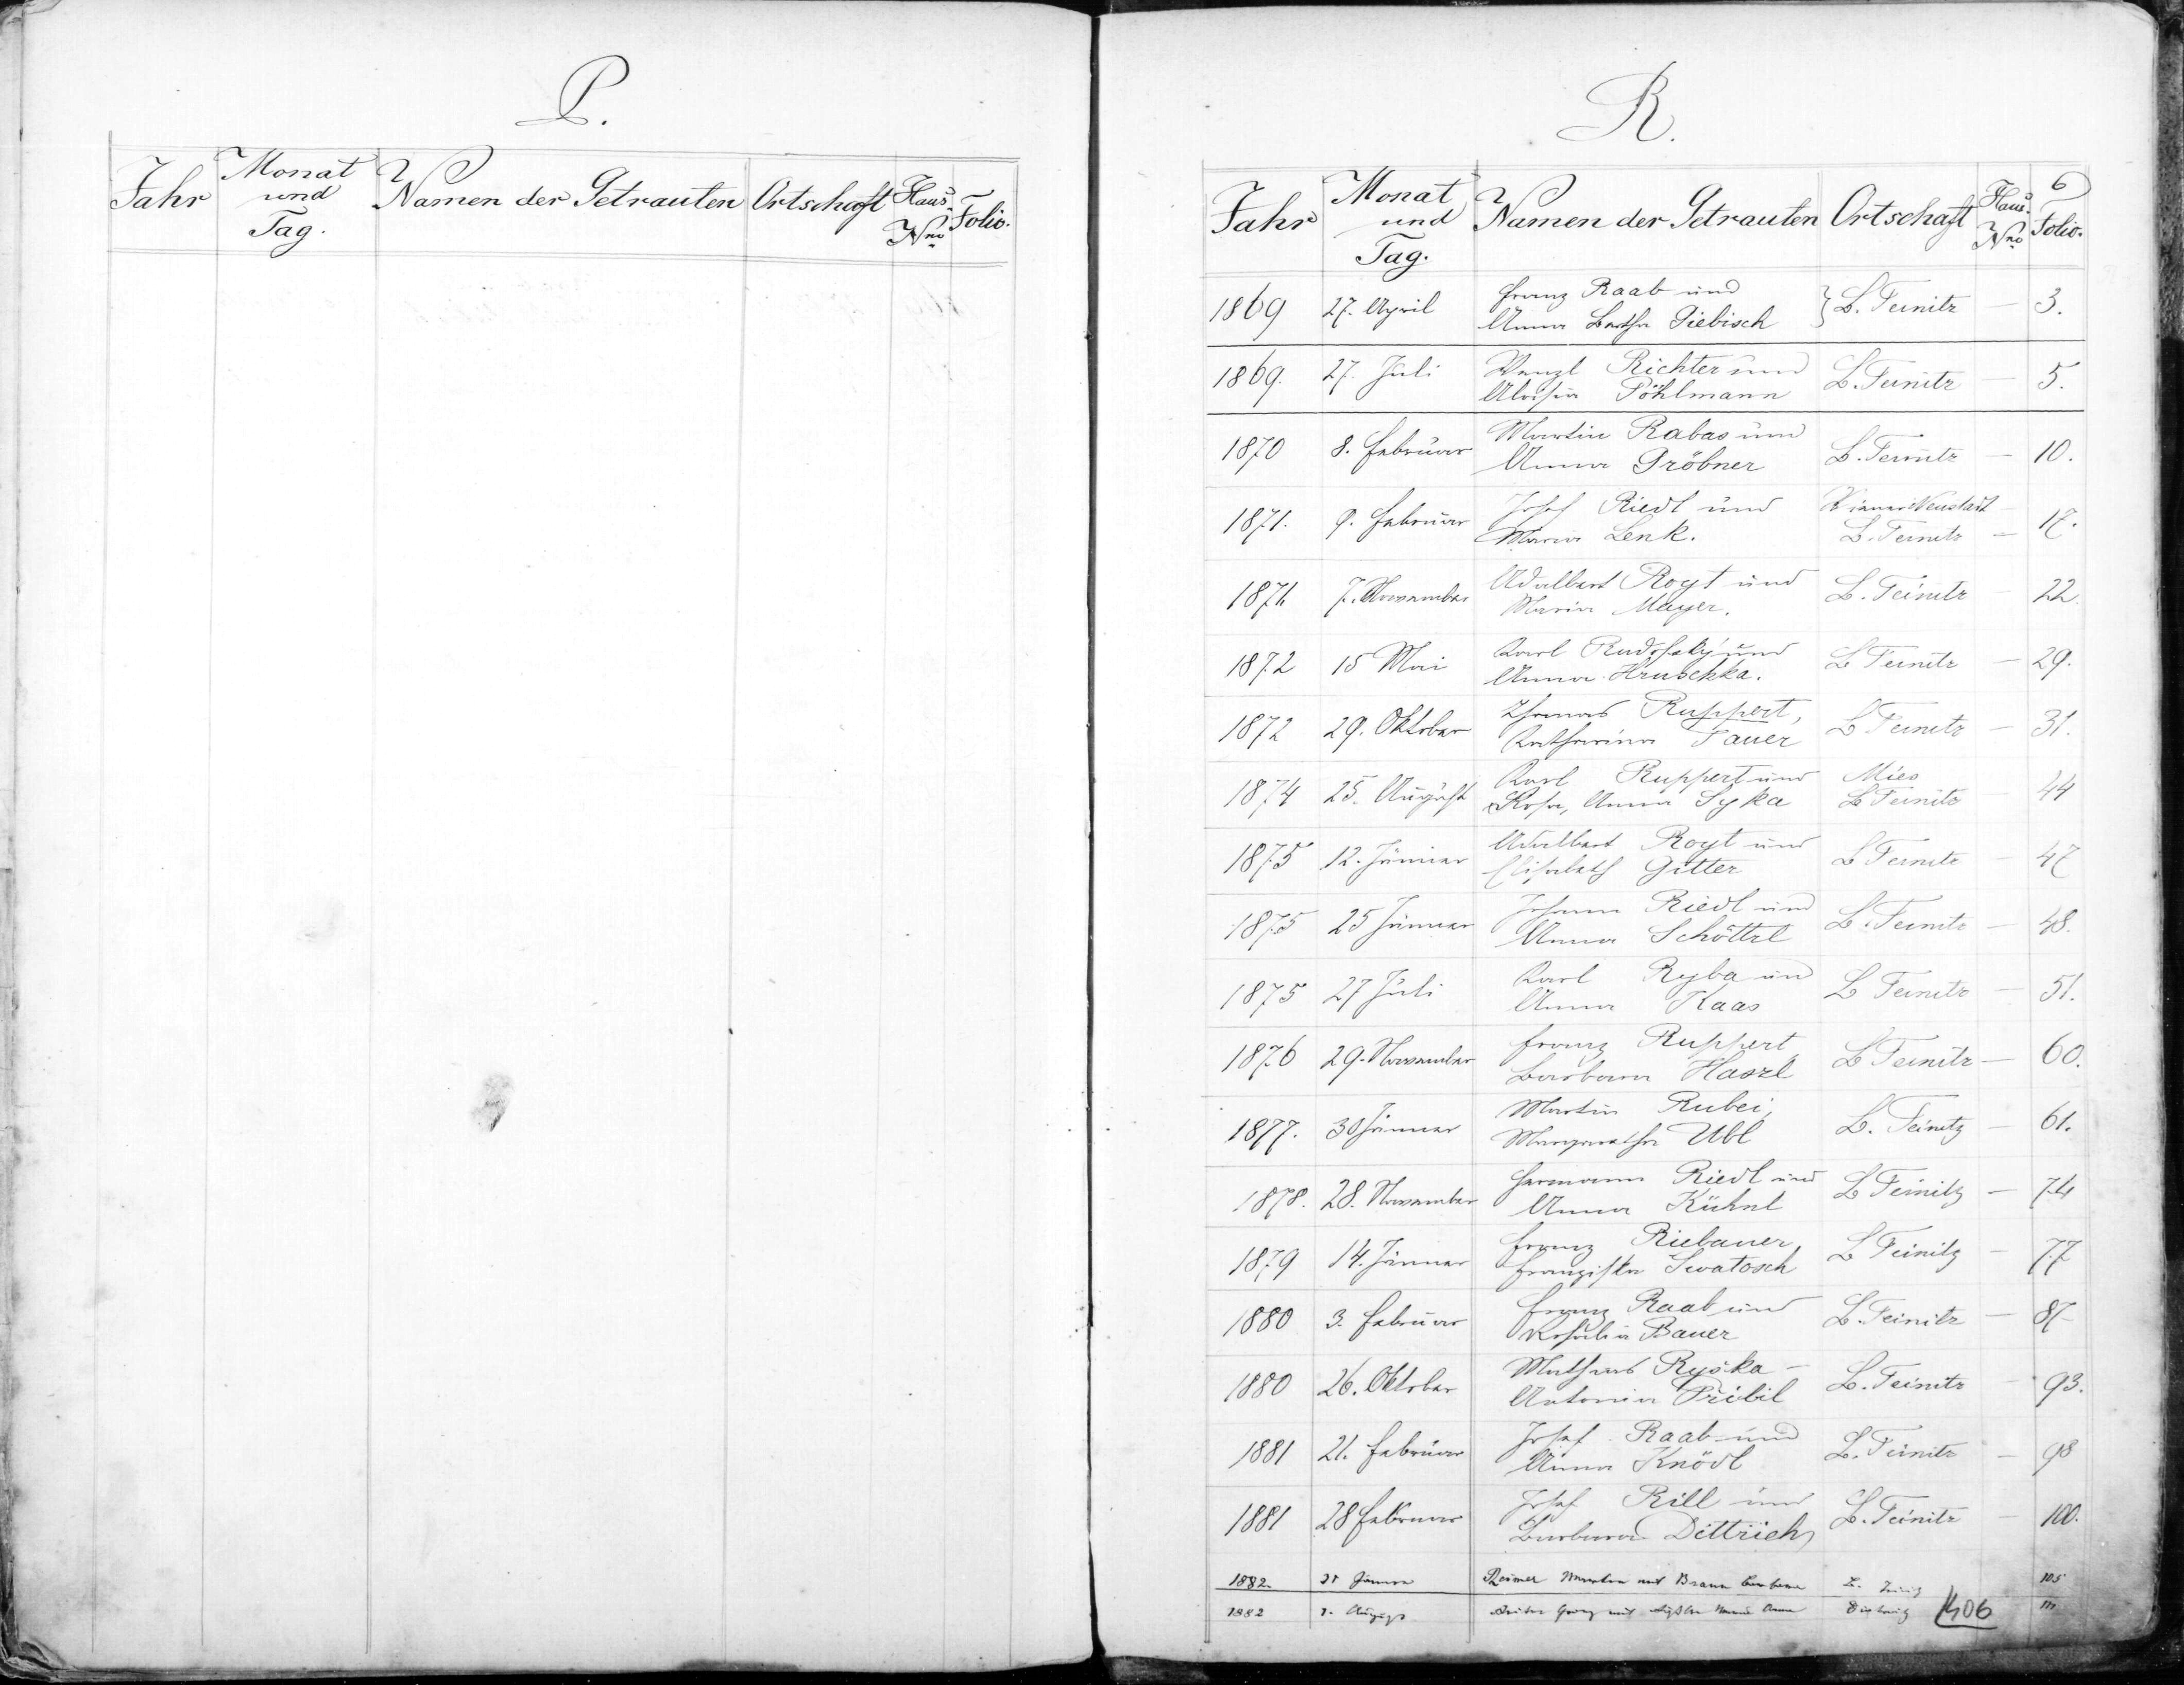 P.
Jahr Monat und Tag. Namen der Getrauten Ortschaft Haus Nro Folio.
R.
6
Jahr Monat und Tag. Namen der Getrauten Ortschaft Haus. Nro Folio.
1869 27. April Franz Raab und } B. Teinitz — 3.
Anna Bertha Piebisch
1869. 27. Juli Wenzl Richter und B. Teinitz — 5.
Aloisia Pöhlmann
1870 8. Februar Martin Rabas und B. Teinitz — 10.
Anna Pröbner
1871. 9. Februar Josef Riedl und Wiener Neustadt
Maria Lenk. B. Teinitz — 17.
1871. 7. November Adalbert Rogt und B. Teinitz — 22.
Maria Mayer.
1872 15 Mai Karl und B Teinitz — 29.
Anna Hruschka.
1872 29. Oktober Thomas Ruppert, B Teinitz — 31.
Katharina
1874 25. August Karl Ruppert und Mies
Rosa, Anna Syka B Teinitz — 44
1875 12. Jänner Adalbert Rogt und B Teinitz — 47
Elisabeth Gitter
1875 25 Jänner Johann Riedl und B. Teinitz — 48.
Anna Schöttel
1875 27 Juli Karl Ryba und B Teinitz — 51.
Anna Kaas
1876 29. November Franz Ruppert B Teinitz — 60.
Barbara Haszl
1877. 30 Jänner Martin Rubei, B. Teinitz — 61.
Margaretha Ubl
1878. 28. November Hermann Riedl und B Teinitz — 74
Anna Kühnl
1879 14. Jänner Franz Riebauer B Teinitz — 77
Franziska Swatosch
1880 3. Februar Franz Raab und B. Teinitz — 87
Rosalia Bauer
1880 26. Oktober Mathias Ryska — B. Teinitz — 93.
Antonia Přibil
1881 21. Februar Josef Raab und B. Teinitz — 98
Anna Knödl
1881 28 Februar Josef Rill und B. Teinitz — 100.
Barbara Dittrich
1882 31 Jänner Reimer Martin mit Braun Barbara 105
1882 August Georg mit Anna 111
406